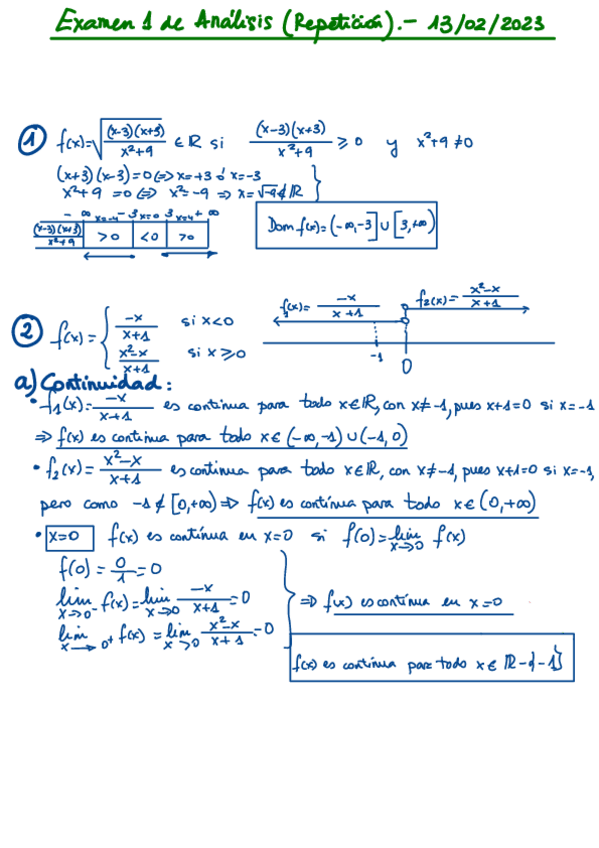 Examen 1 de Análisis (Repetición).- 13/02/2023
① f(x)=√((x-3)(x+3)/(x²+9)) ∈ ℝ si (x-3)(x+3)/(x²+9) ⩾ 0 y x²+9 ≠0
(x+3)(x-3)=0 ⟺ x=+3 ó x=-3
x²+9 =0 ⟺ x²=-9 ⇒ x=√-9 ∉ ℝ
-∞ x=-4 -3 x=0 3 x=4 +∞
(x-3)(x+3)/(x²+9) >0 <0 >0
Dom f(x)= (-∞,-3] ∪ [3,+∞)
② f(x) = { -x/(x+1) si x<0
(x²-x)/(x+1) si x⩾0
f₁(x)= -x/(x+1) f₂(x)= (x²-x)/(x+1)
-1 0
a) Continuidad:
• f₁(x)= -x/(x+1) es continua para todo x∈ℝ, con x≠-1, pues x+1=0 si x=-1
⇒ f(x) es continua para todo x∈(-∞,-1)∪(-1,0)
• f₂(x)= (x²-x)/(x+1) es continua para todo x∈ℝ, con x≠-1, pues x+1=0 si x=-1,
pero como -1∉[0,+∞) ⇒ f(x) es contínua para todo x∈(0,+∞)
• x=0 f(x) es contínua en x=0 si f(0)=lim x→0 f(x)
f(0) = 0/1 =0
lim x→0⁻ f(x)=lim x→0 -x/(x+1) =0
lim x→0⁺ f(x) = lim x→0 (x²-x)/(x+1) =0
⇒ f(x) es contínua en x=0
f(x) es contínua para todo x∈ ℝ-{-1}